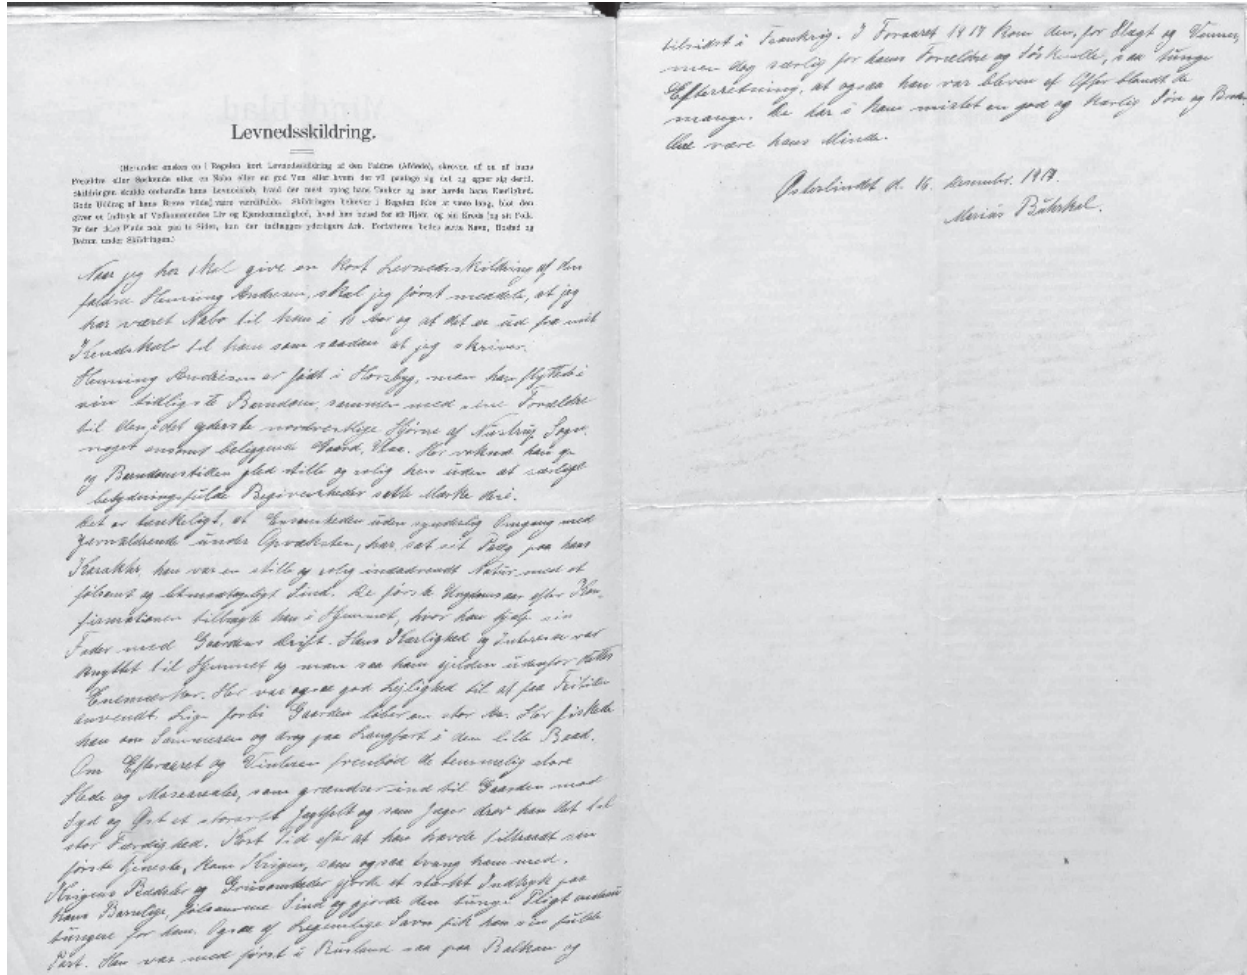 Levnedsskildring.
(Herunder ønskes en i Regelen kort Levnedsskildring af den Faldne (Afdøde), skreven af en af hans
Forældre eller Søskende eller en Nabo eller en god Ven eller hvem der vil paatage sig det og egner sig dertil.
Skildringen skulde omhandle hans Levnedsløb, hvad der mest optog hans Tanker og især havde hans Kærlighed.
Gode Uddrag af hans Breve vilde være værdifulde. Skildringen behøver i Regelen ikke at være lang, blot den
giver et Indtryk af Vedkommendes Liv og Ejendommelighed, hvad han betød for sit Hjem, og sin Kreds og sit Folk.
Er der ikke Plads nok paa to Sider, kan der indlægges yderligere Ark. Forfatteren bedes sætte Navn, Bosted og
Datum under Skildringen.)
Naar jeg her skal give en kort Levnedsskildring af den
faldne Henning Andresen, skal jeg først meddele, at jeg
har været Nabo til ham i 10 Aar og at det er ud fra mit
Kendskab til ham som saadan at jeg skriver.
Henning Andresen er født i Horsbyg, men han flyttede i
sin tidligste Barndom, sammen med sine Forældre
til den i det yderste nordvestlige Hjørne af Nustrup Sogn
noget ensomt beliggende Gaard, . Her voksede han op
og Barndomstiden gled stille og rolig hen uden at særlige
betydningsfulde Begivenheder satte Mærke deri.
Det er tænkeligt, at Ensomheden uden synderlig Omgang med
Jevnaldrende under Opvæksten, har sat sit Præg paa hans
Karakter, han var en stille og rolig indadvendt Natur med et
følsomt og letmodtageligt Sind. De første Ungdomsaar efter Kon-
firmationen tilbragte han i Hjemmet, hvor han hjalp sin
Fader med Gaardens Drift. Hans Kærlighed og Interesse var
knyttet til Hjemmet og man saa ham sjelden udenfor dettes
Enemærker. Her var ogsaa god Lejlighed til at faa Fritiden
anvendt. Lige forbi Gaarden løber en stor Aa. Her fiskede
han om Sommeren og drog paa Langfart i den lille Baad.
Om Efteraaret og Vinteren frembød de temmelig store
Hede og Mosearealer, som grændser ind til Gaarden mod
Syd og Øst et Jagtfelt og som Jæger drev han det til
stor Færdighed. Kort Tid efter at han havde tiltraadt sin
første Tjeneste, kom Krigen, som ogsaa tvang ham med.
Krigens Rædsler og Grusomheder gjorde et stærkt Indtryk paa
hans Barnlige, følsomme Sind og gjorde den tunge Pligt endnu
tungere for ham. Ogsaa af Legemlige Savn fik han sin fulde
Part. Han var med først i Rusland saa paa Balkan og
tilsidst i Frankrig. I Foraaret 1917 kom den, for Slægt og Venner,
men dog særlig for hans Forældre og Søskende, saa tunge
Efterretning, at ogsaa han var bleven et Offer blandt de
mange. De har i ham mistet en god og kærlig Søn og Broder.
Ære være hans Minde.
Østerlindet d. 16. December.
Marius Buhrkal.